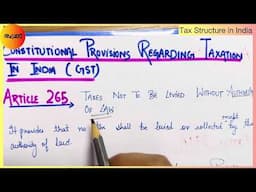 Tax Structure in India
CONSTITUTIONAL PROVISIONS REGARDING TAXATION
IN INDIA (GST)
ARTICLE 265 TAXES NOT TO BE LEVIED WITHOUT AUTHORITY
OF LAW
except
It provides that no shall be levied or collected by the
authority of law.